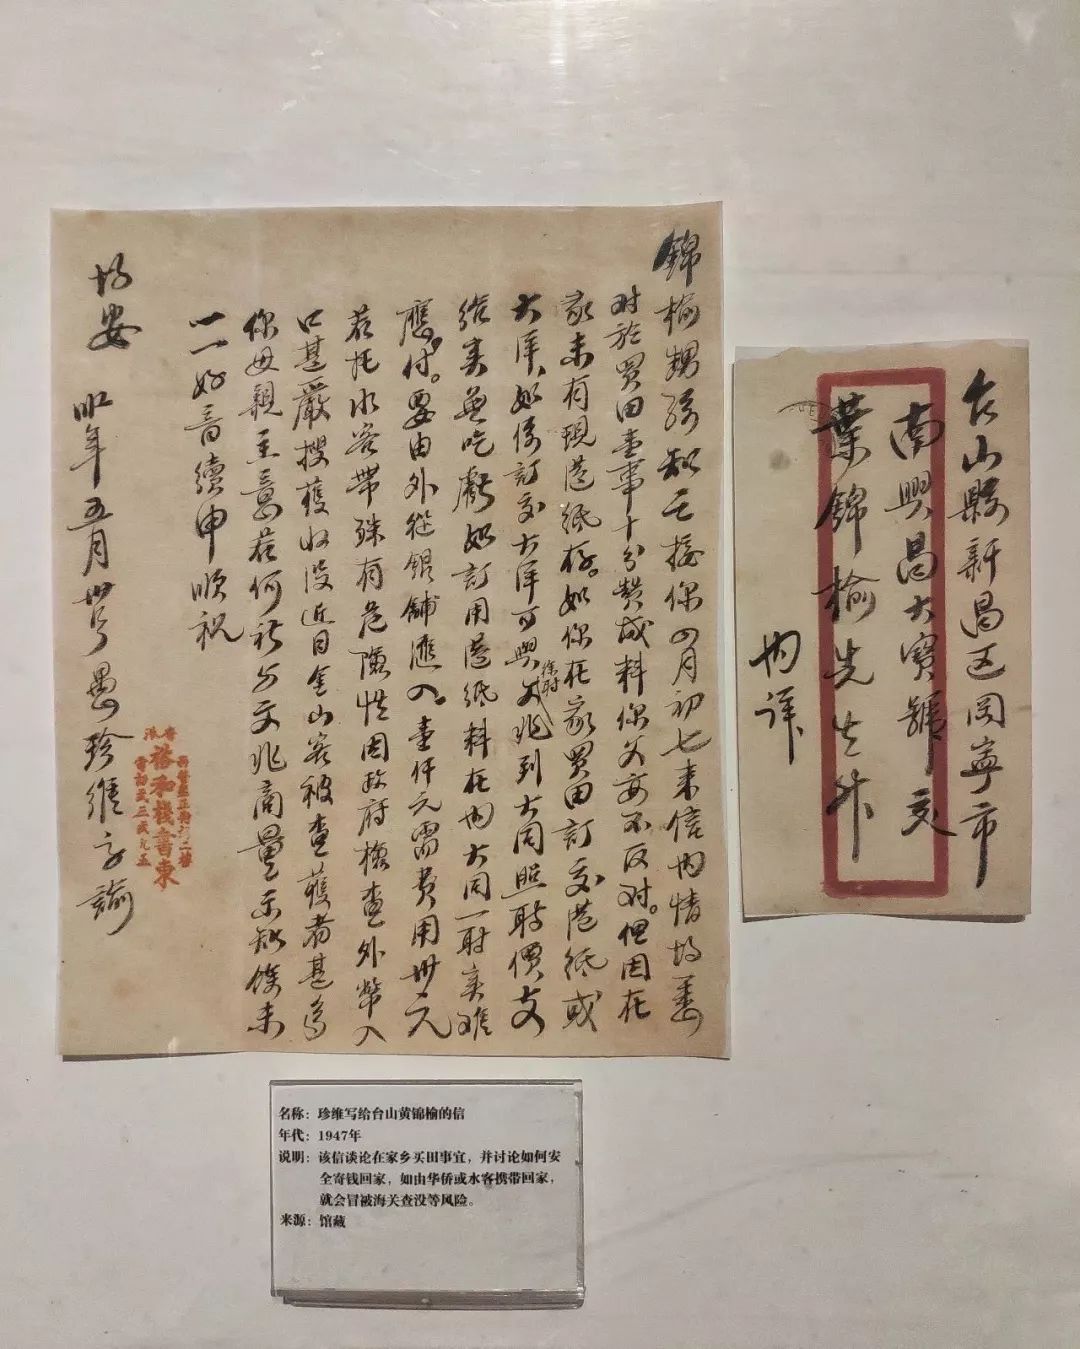 錦榆甥孫知之接你四月初七来信内情均悉
对於買田壹事十分赞成料你父母不反对。但因在
家未有現港紙存。如你在家買田訂交港紙或
大洋、如係訂交大洋可與文兆到大同照时價支
给实無吃虧如訂用港紙料在内大同一时实难
應付。要由外從銀舖滙入。壹仟元需費用卅元
若托水客带殊有危險性因政府檢查外幣入
口甚嚴搜獲收没近日金山客被查獲者甚多
你母親主意若何祈与文兆商量示知餘未
一一好音續申順祝
均安
卅年五月廿号愚珍維字諭
香港
裕和棧書柬
台山縣新昌区同寧市
南興昌大寶號交
葉錦榆先生升
内详
名称：珍维写给台山黄锦榆的信
年代：1947年
说明：该信谈论在家乡买田事宜，并讨论如何安
全寄钱回家，如由华侨或水客携带回家，
就会冒被海关查没等风险。
来源：馆藏